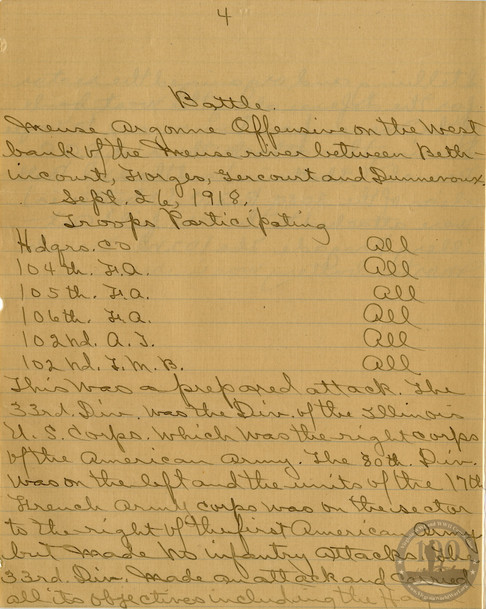 4
Battle.
Meuse Argonne Offensive on the West
bank of the Meuse river between Beth-
incourt, Forges, Gercourt and Dannevoux.
Sept. 26, 1918.
Troops Participating
Hdqrs. Co All
104th. F.A. All
105th. F.A. All
106th. F.A. All
102nd. A.T. All
102nd. T.M.B. All
This was a prepared attack. The
33rd. Div. was the Div. of the Illinois
U.S. Corps. which was the right corps
of the American Army. The 80th. Div.
was on the left and the units of the 17th
French Army corps was on the sector
to the right of the first American Army
but made no infantry attacks.
33rd. Div. made an attack and carried
all its objectives including the